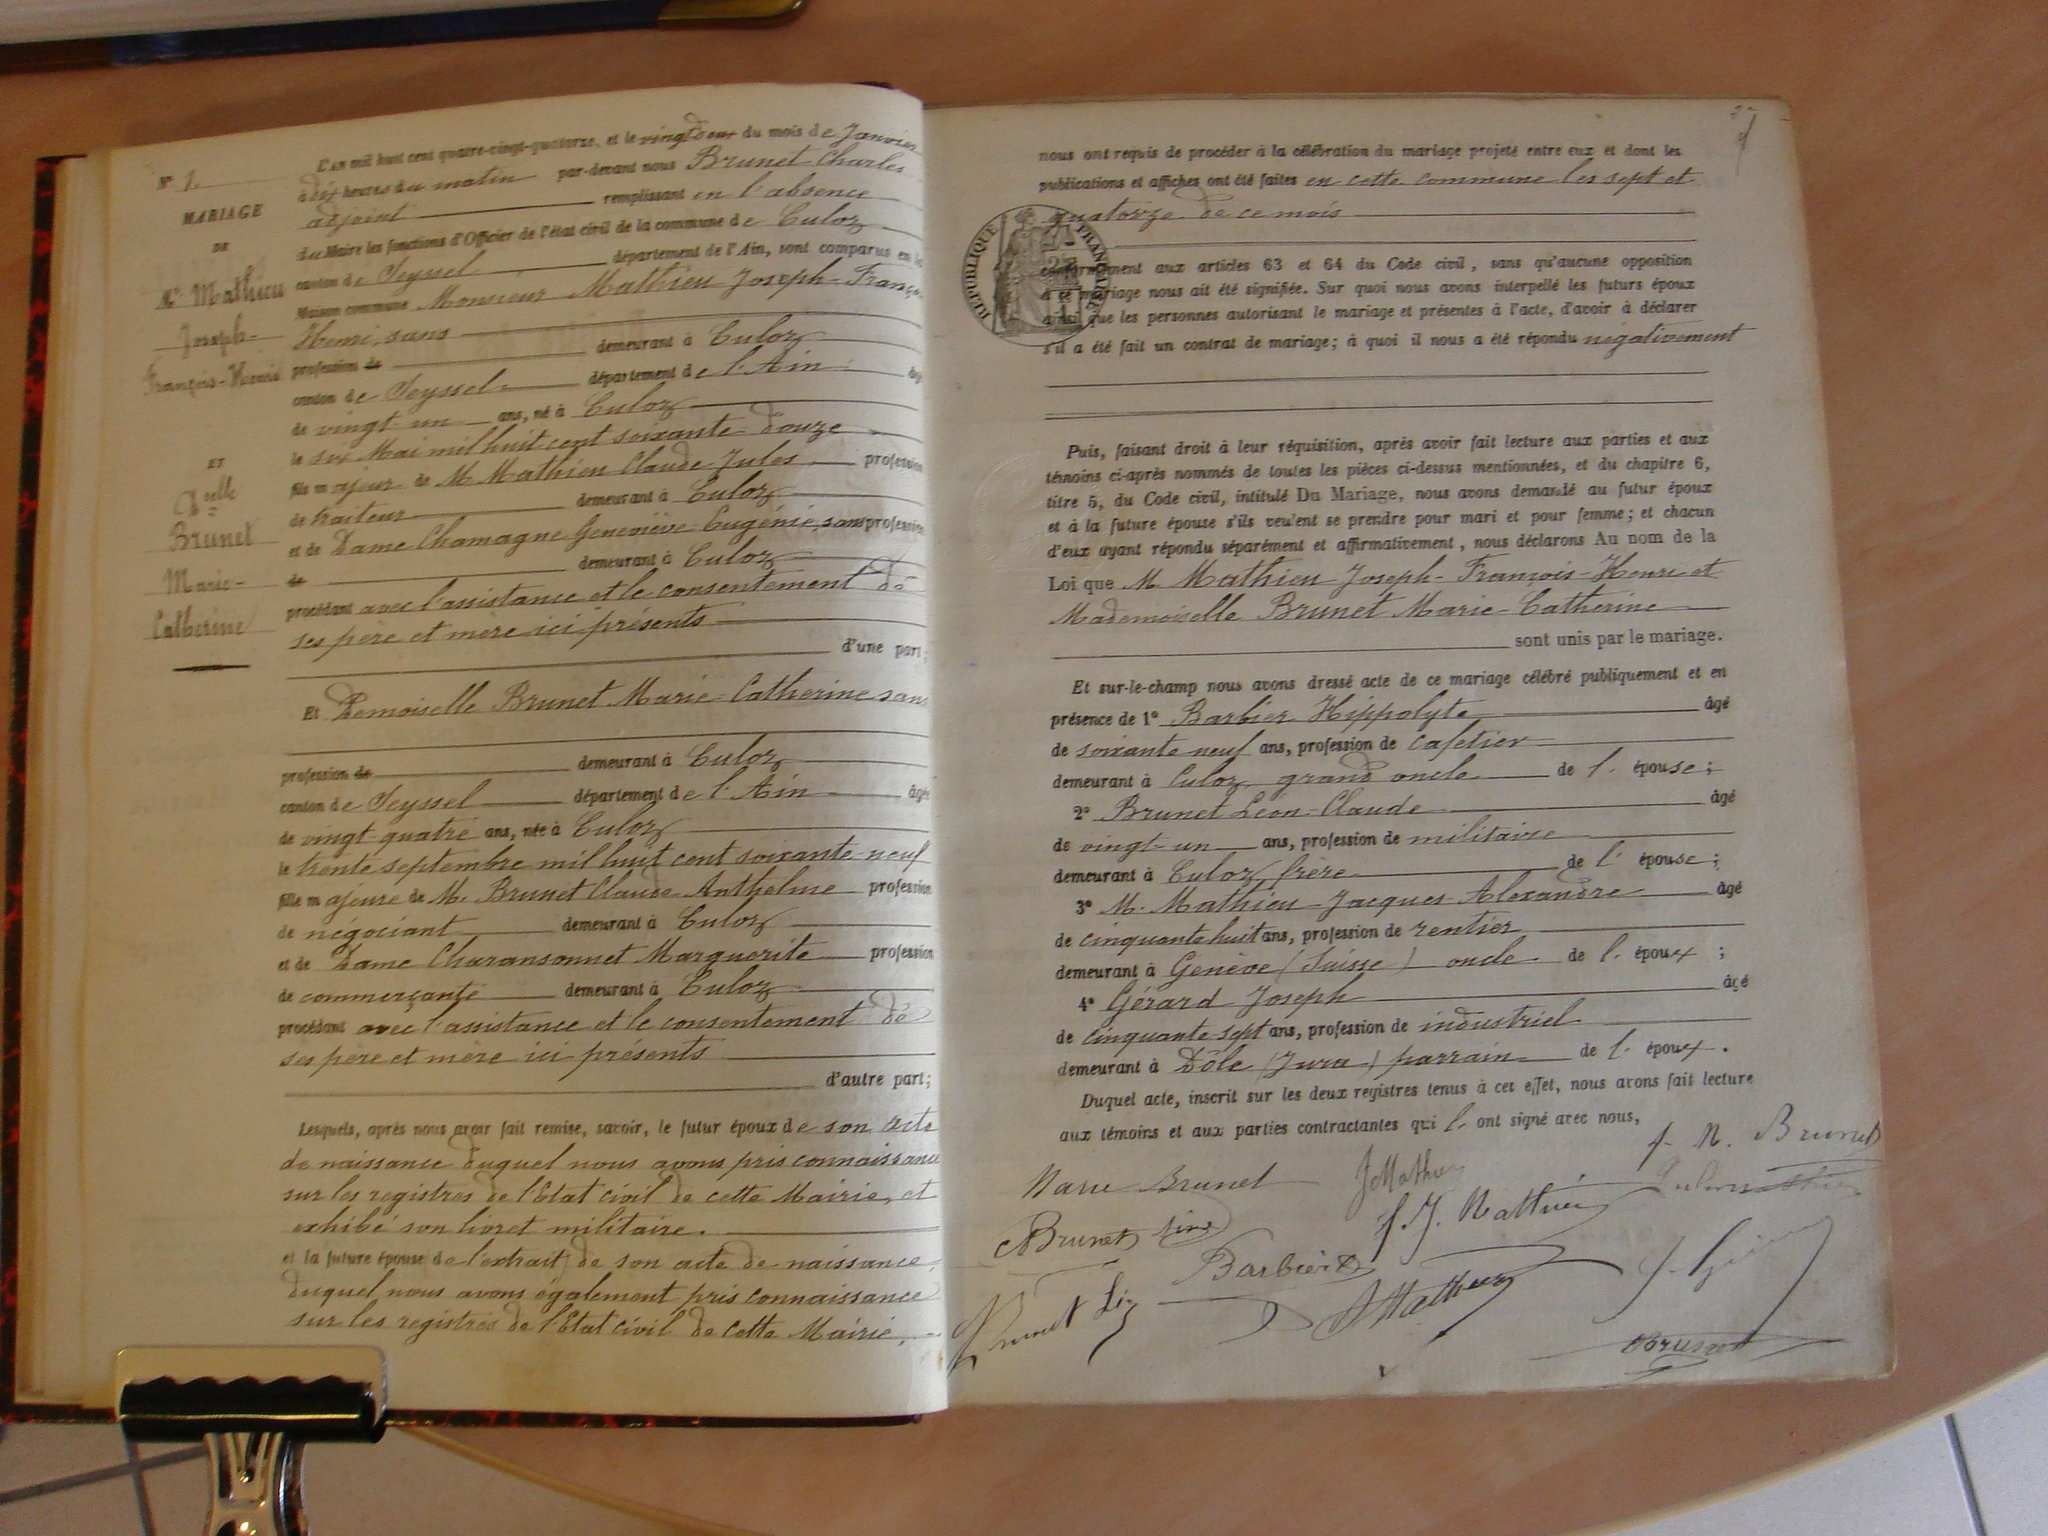 N° 1
MARIAGE
DE
Mr Mathieu
Joseph-
François-Henri
ET
Delle
Brunet
Marie-
Catherine
L'AN mil huit cent quatre-vingt-quatorze, et le vingt deux du mois de Janvier
à dix heures du matin par-devant nous Brunet Charles
adjoint remplissant en l'absence
du Maire les fonctions d'Officier de l'état civil de la commune de Culoz
canton de Seyssel département de l'Ain, sont comparus en la
Maison commune Monsieur Mathieu Joseph-François
Henri, sans
profession de demeurant à Culoz
canton de Seyssel département de l'Ain âgé
de vingt-un ans, né à Culoz
le six Mai mil huit cent soixante-douze
fils majeur de M. Mathieu Claude-Jules profession
de traiteur demeurant à Culoz
et de Dame Chamagne Geneviève-Eugénie, sans profession
de demeurant à Culoz
procédant avec l'assistance et le consentement de
ses père et mère ici présents
d'une part;
Et Demoiselle Brunet Marie-Catherine sans
profession de demeurant à Culoz
canton de Seyssel département de l'Ain âgée
de vingt-quatre ans, née à Culoz
le trente septembre mil huit cent soixante-neuf
fille majeure de M. Brunet Claude Anthelme profession
de négociant demeurant à Culoz
et de Dame Charansonnet Marguerite profession
de commerçante demeurant à Culoz
procédant avec l'assistance et le consentement de
ses père et mère ici présents
d'autre part;
Lesquels, après nous avoir fait remise, savoir, le futur époux de son acte
de naissance duquel nous avons pris connaissance
sur les registres de l'Etat civil de cette Mairie, et
exhibé son livret militaire.
et la future épouse de l'extrait de son acte de naissance,
duquel nous avons également pris connaissance
sur les registres de l'Etat civil de cette Mairie,
nous ont requis de procéder à la célébration du mariage projeté entre eux et dont les
publications et affiches ont été faites en cette commune les sept et
quatorze de ce mois
RÉPUBLIQUE FRANÇAISE
conformément aux articles 63 et 64 du Code civil, sans qu'aucune opposition
à ce mariage nous ait été signifiée. Sur quoi nous avons interpellé les futurs époux
ainsi que les personnes autorisant le mariage et présentes à l'acte, d'avoir à déclarer
s'il a été fait un contrat de mariage; à quoi il nous a été répondu négativement
Puis, faisant droit à leur réquisition, après avoir fait lecture aux parties et aux
témoins ci-après nommés de toutes les pièces ci-dessus mentionnées, et du chapitre 6,
titre 5, du Code civil, intitulé Du Mariage, nous avons demandé au futur époux
et à la future épouse s'ils veulent se prendre pour mari et pour femme; et chacun
d'eux ayant répondu séparément et affirmativement, nous déclarons Au nom de la
Loi que M. Mathieu Joseph-François-Henri et
Mademoiselle Brunet Marie-Catherine
sont unis par le mariage.
Et sur-le-champ nous avons dressé acte de ce mariage célébré publiquement et en
présence de 1° Barbier Hippolyte âgé
de soixante neuf ans, profession de cafetier
demeurant à Culoz grand oncle de l'épouse;
2° Brunet Léon-Claude âgé
de vingt-un ans, profession de militaire
demeurant à Culoz frère de l'épouse;
3° M. Mathieu Jacques Alexandre âgé
de cinquante huit ans, profession de rentier
demeurant à Genève (Suisse) oncle de l'époux;
4° Gérard Joseph âgé
de cinquante sept ans, profession de industriel
demeurant à Dôle (Jura) parrain de l'époux.
Duquel acte, inscrit sur les deux registres tenus à cet effet, nous avons fait lecture
aux témoins et aux parties contractantes qui l'ont signé avec nous,
Marie Brunet J Mathieu Brunet
Brunet Mathieu
Barbier
Brunet Mathieu
Brunet